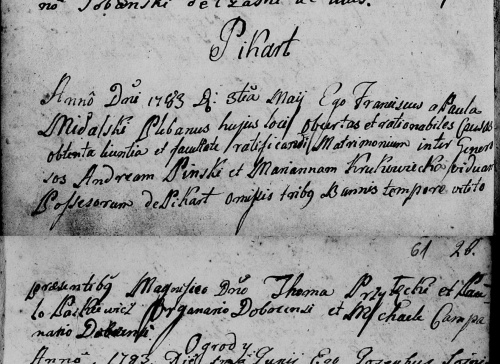 Pikart
Annô Dnî 1783 D: 3tia Maij Ego Franciscus a Paula
Midalski Plebanus hujus loci obvertas et rationabiles Causas
obtenta licentia et facultate ratificandi Matrimonium inter Genero
sos Andream Pinski et Mariannam Krukowiecka Viduam
Possesorum de Pikart omissis tribq Bannis tempore vetito
61 28.
presentibq Magnifico Dnô Thoma Przytecki et Pau
lo Paskiewicz Organario Dobrcensi et Michaele Campa
nario Dobrcensi
Ogrody
Annô 1783 Junij Ego Josephus